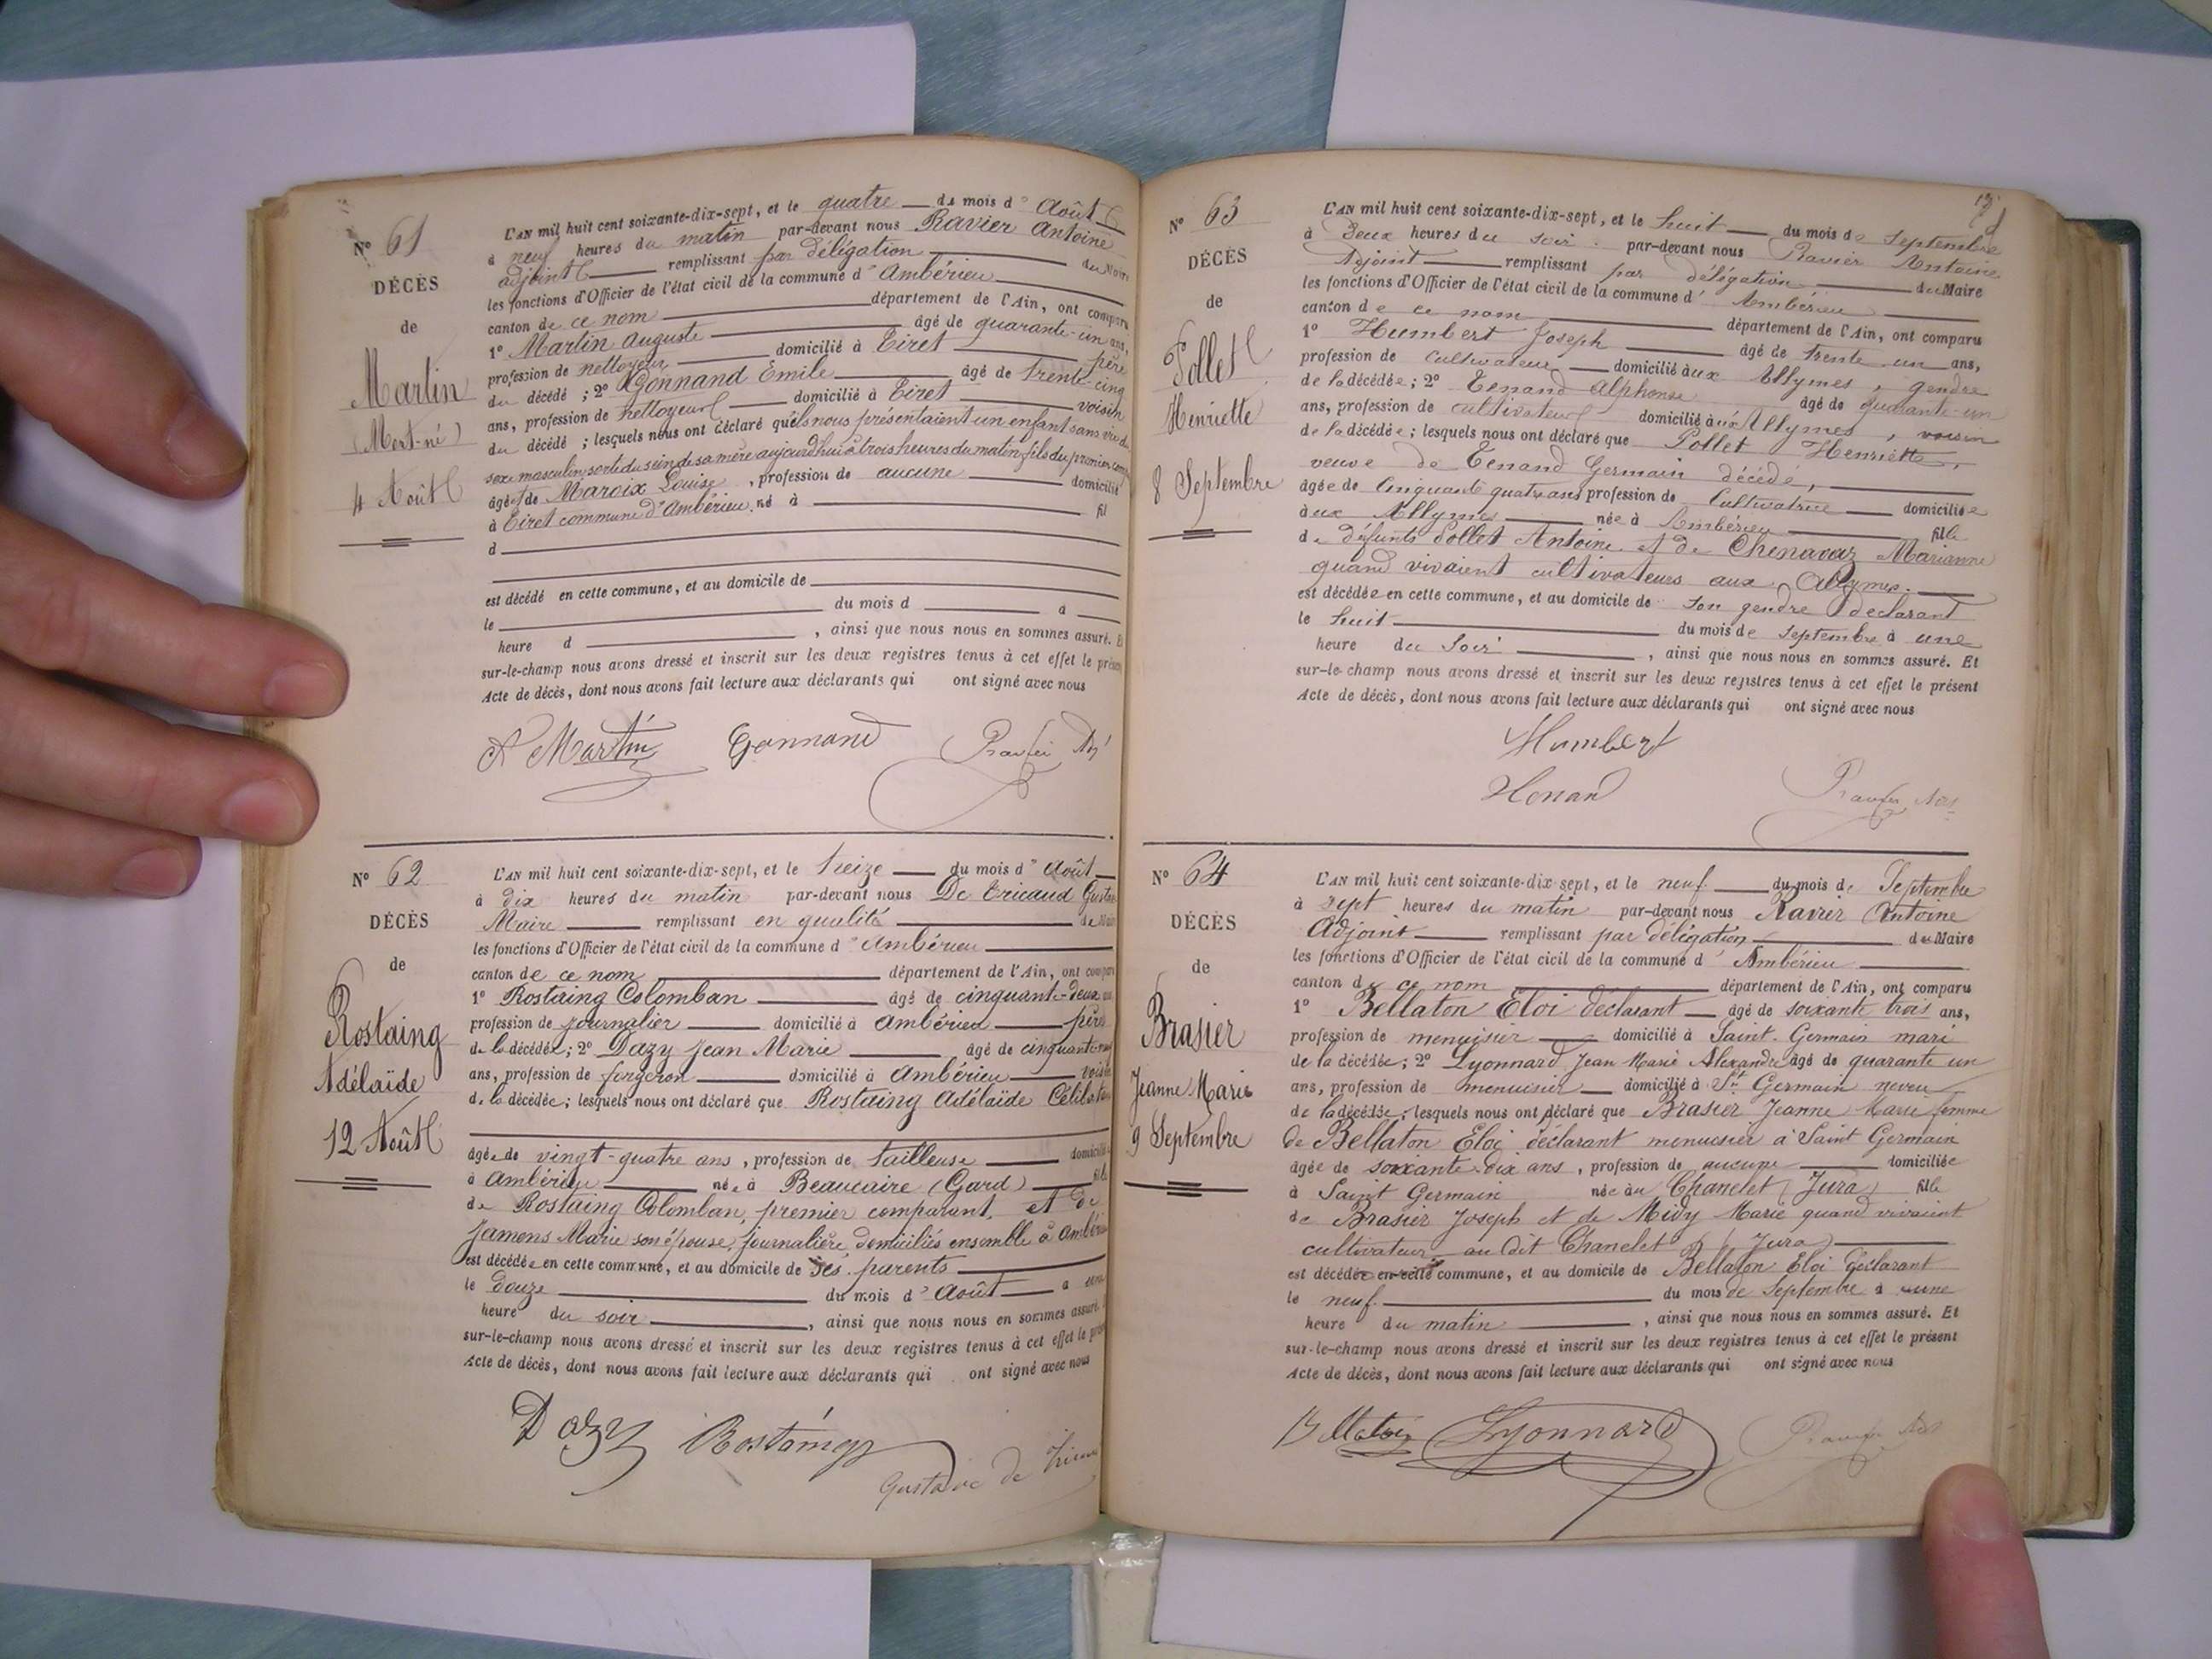 N° 61
DÉCÈS
de
Martin
(Mort-né)
4 Août
L'AN mil huit cent soixante-dix-sept, et le quatre du mois d'Août
à neuf heures du matin par-devant nous Ravier Antoine
adjoint remplissant par délégation du Maire
les fonctions d'Officier de l'état civil de la commune d'Ambérieu
canton de ce nom département de l'Ain, ont comparu
1° Martin Auguste âgé de quarante-un ans,
profession de nettoyeur domicilié à Tiret père
du décédé ; 2° Gonnand Emile âgé de trente-cinq
ans, profession de nettoyeur domicilié à Tiret voisin
du décédé ; lesquels nous ont déclaré qu'ils nous présentaient un enfant sans vie du
sexe masculin sorti du sein de sa mère aujourd'hui à trois heures du matin, fils du premier
âgé et de Maroix Louise, profession de aucune domicilié
à Tiret commune d'Ambérieu, né à fil
d
est décédé en cette commune, et au domicile de
le du mois d à
heure d , ainsi que nous nous en sommes assuré. Et
sur-le-champ nous avons dressé et inscrit sur les deux registres tenus à cet effet le présent
Acte de décès, dont nous avons fait lecture aux déclarants qui ont signé avec nous
A Martin Gonnand Ravier Adj
N° 62
DÉCÈS
de
Rostaing
Adélaïde
12 Août
L'AN mil huit cent soixante-dix-sept, et le treize du mois d'Août
à dix heures du matin par-devant nous De Tricaud Gustave
Maire remplissant en qualité de Maire
les fonctions d'Officier de l'état civil de la commune d'Ambérieu
canton de ce nom département de l'Ain, ont comparu
1° Rostaing Colomban âgé de cinquante-deux ans
profession de journalier domicilié à Ambérieu père
de la décédée; 2° Dazy Jean Marie âgé de cinquante
ans, profession de forgeron domicilié à Ambérieu voisin
de la décédée; lesquels nous ont déclaré que Rostaing Adélaïde Célibataire
âgée de vingt-quatre ans, profession de tailleuse domiciliée
à Ambérieu née à Beaucaire (Gard) fille
de Rostaing Colomban, premier comparant, et de
Jamens Marie son épouse, journalière, domiciliés ensemble à Ambérieu
est décédée en cette commune, et au domicile de ses parents
le douze du mois d'Août à une
heure du soir , ainsi que nous nous en sommes assuré.
sur-le-champ nous avons dressé et inscrit sur les deux registres tenus à cet effet le présent
Acte de décès, dont nous avons fait lecture aux déclarants qui ont signé avec nous
Dazy Rostaing
Gustave de Tricaud
N° 63
DÉCÈS
de
Pollet
Henriette
8 Septembre
L'AN mil huit cent soixante-dix-sept, et le huit du mois de Septembre
à deux heures du soir par-devant nous Ravier Antoine
Adjoint remplissant par délégation du Maire
les fonctions d'Officier de l'état civil de la commune d'Ambérieu
canton de ce nom département de l'Ain, ont comparu
1° Humbert Joseph âgé de trente un ans,
profession de cultivateur domicilié aux Allymes, gendre
de la décédée; 2° Tenand Alphonse âgé de quarante-un
ans, profession de cultivateur domicilié aux Allymes, voisin
de la décédée; lesquels nous ont déclaré que Pollet Henriette,
veuve de Tenand Germain décédé,
âgée de Cinquante quatre ans profession de Cultivatrice domiciliée
aux Allymes née à Ambérieu fille
de défunts Pollet Antoine et de Chenavaz Marianne
quand vivaient cultivateurs aux Allymes.
est décédée en cette commune, et au domicile de son gendre déclarant
le huit du mois de Septembre à une
heure du Soir , ainsi que nous nous en sommes assuré. Et
sur-le-champ nous avons dressé et inscrit sur les deux registres tenus à cet effet le présent
Acte de décès, dont nous avons fait lecture aux déclarants qui ont signé avec nous
Humbert
Tenand Ravier Adj
N° 64
DÉCÈS
de
Brasier
Jeanne Marie
9 Septembre
L'AN mil huit cent soixante-dix-sept, et le neuf du mois de Septembre
à sept heures du matin par-devant nous Ravier Antoine
Adjoint remplissant par délégation du Maire
les fonctions d'Officier de l'état civil de la commune d'Ambérieu
canton de ce nom département de l'Ain, ont comparu
1° Bellaton Eloi déclarant âgé de soixante trois ans,
profession de menuisier domicilié à Saint-Germain mari
de la décédée; 2° Lyonnard Jean Marie Alexandre âgé de quarante un
ans, profession de menuisier domicilié à St Germain neveu
de la décédée; lesquels nous ont déclaré que Brasier Jeanne Marie femme
de Bellaton Eloi déclarant menuisier à Saint Germain
âgée de soixante-dix ans, profession de aucune domiciliée
à Saint Germain née au Chanelet (Jura) fille
de Brasier Joseph et de Midy Marie quand vivaient
cultivateurs au dit Chanelet (Jura)
est décédée en cette commune, et au domicile de Bellaton Eloi déclarant
le neuf du mois de Septembre à une
heure du matin , ainsi que nous nous en sommes assuré. Et
sur-le-champ nous avons dressé et inscrit sur les deux registres tenus à cet effet le présent
Acte de décès, dont nous avons fait lecture aux déclarants qui ont signé avec nous
Lyonnard Ravier Adj